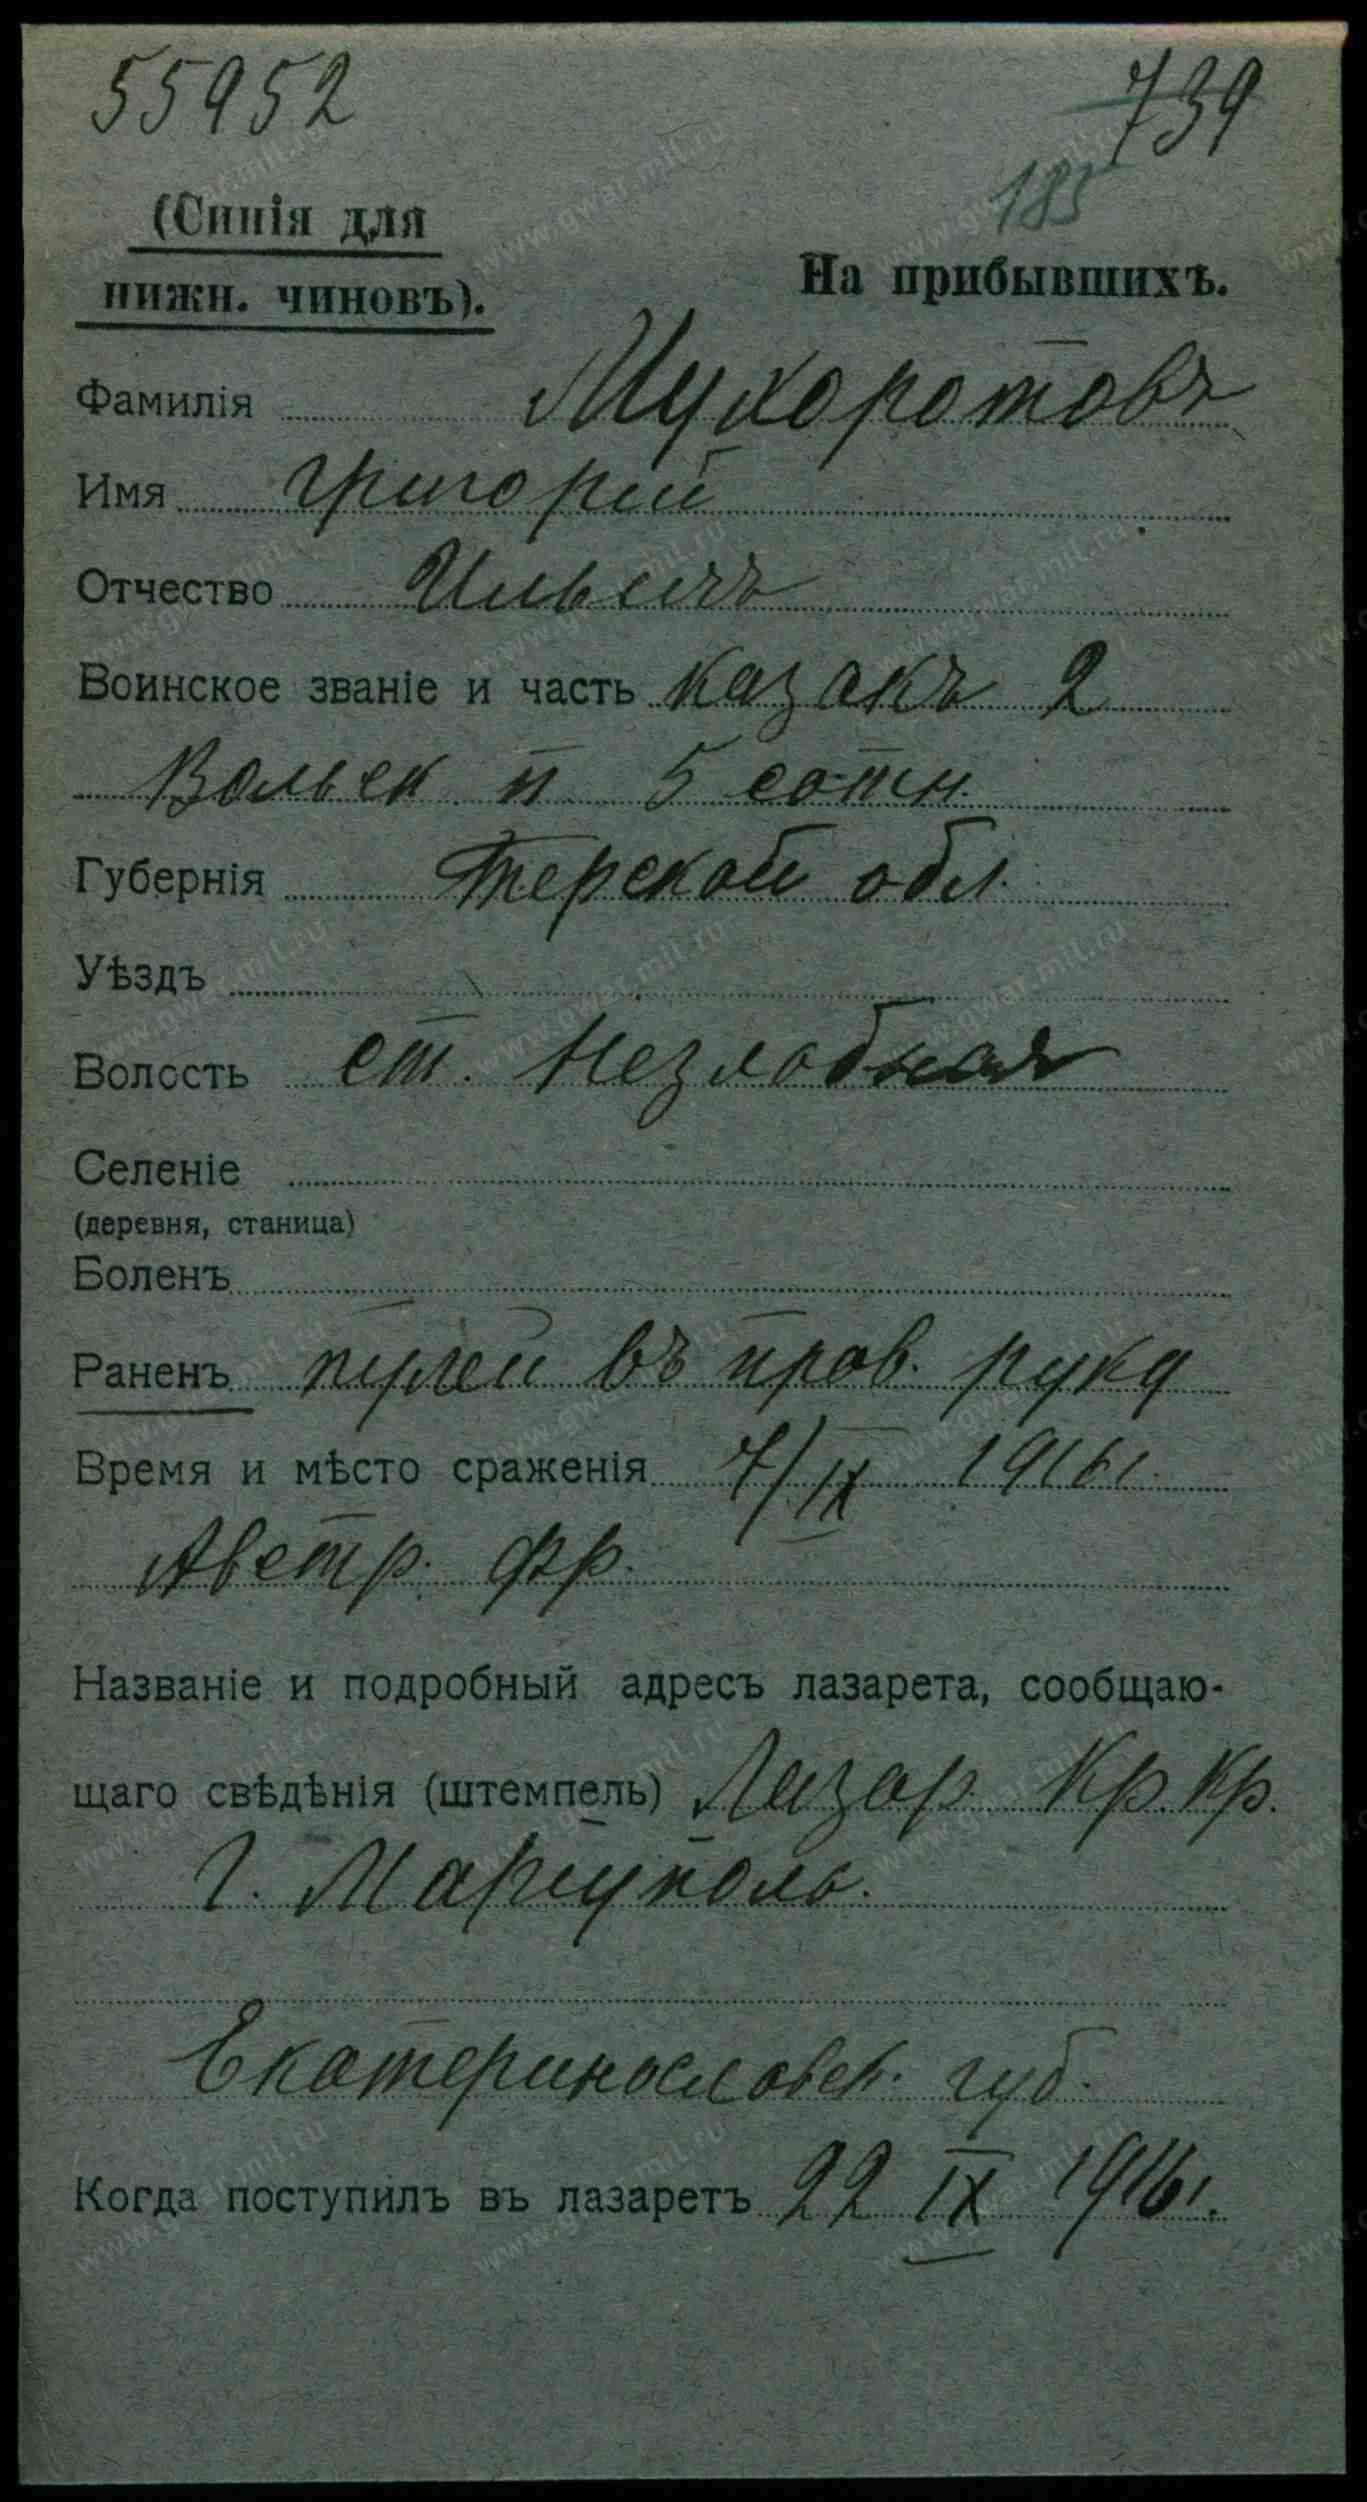 55952
739
185
(Синія для
нижн. чиновъ).
На прибывшихъ.
Фамилія Мухоротовъ
Имя Григорій
Отчество Ильичъ
Воинское званіе и часть казакъ 2
Вольск п 5 сотн.
Губернія Терской обл.
Уѣздъ
Волость ст. Незлобная
Селеніе
(деревня, станица)
Боленъ
Раненъ пулей въ прав. руку
Время и мѣсто сраженія 7/IX 1916 г.
Австр. фр.
Названіе и подробный адресъ лазарета, сообщаю-
щаго свѣдѣнія (штемпель) Лазар. Кр. Кр.
г. Маріуполь.
Екатеринославск. губ.
Когда поступилъ въ лазаретъ 22 IX 1916 г.
www.gwar.mil.ru